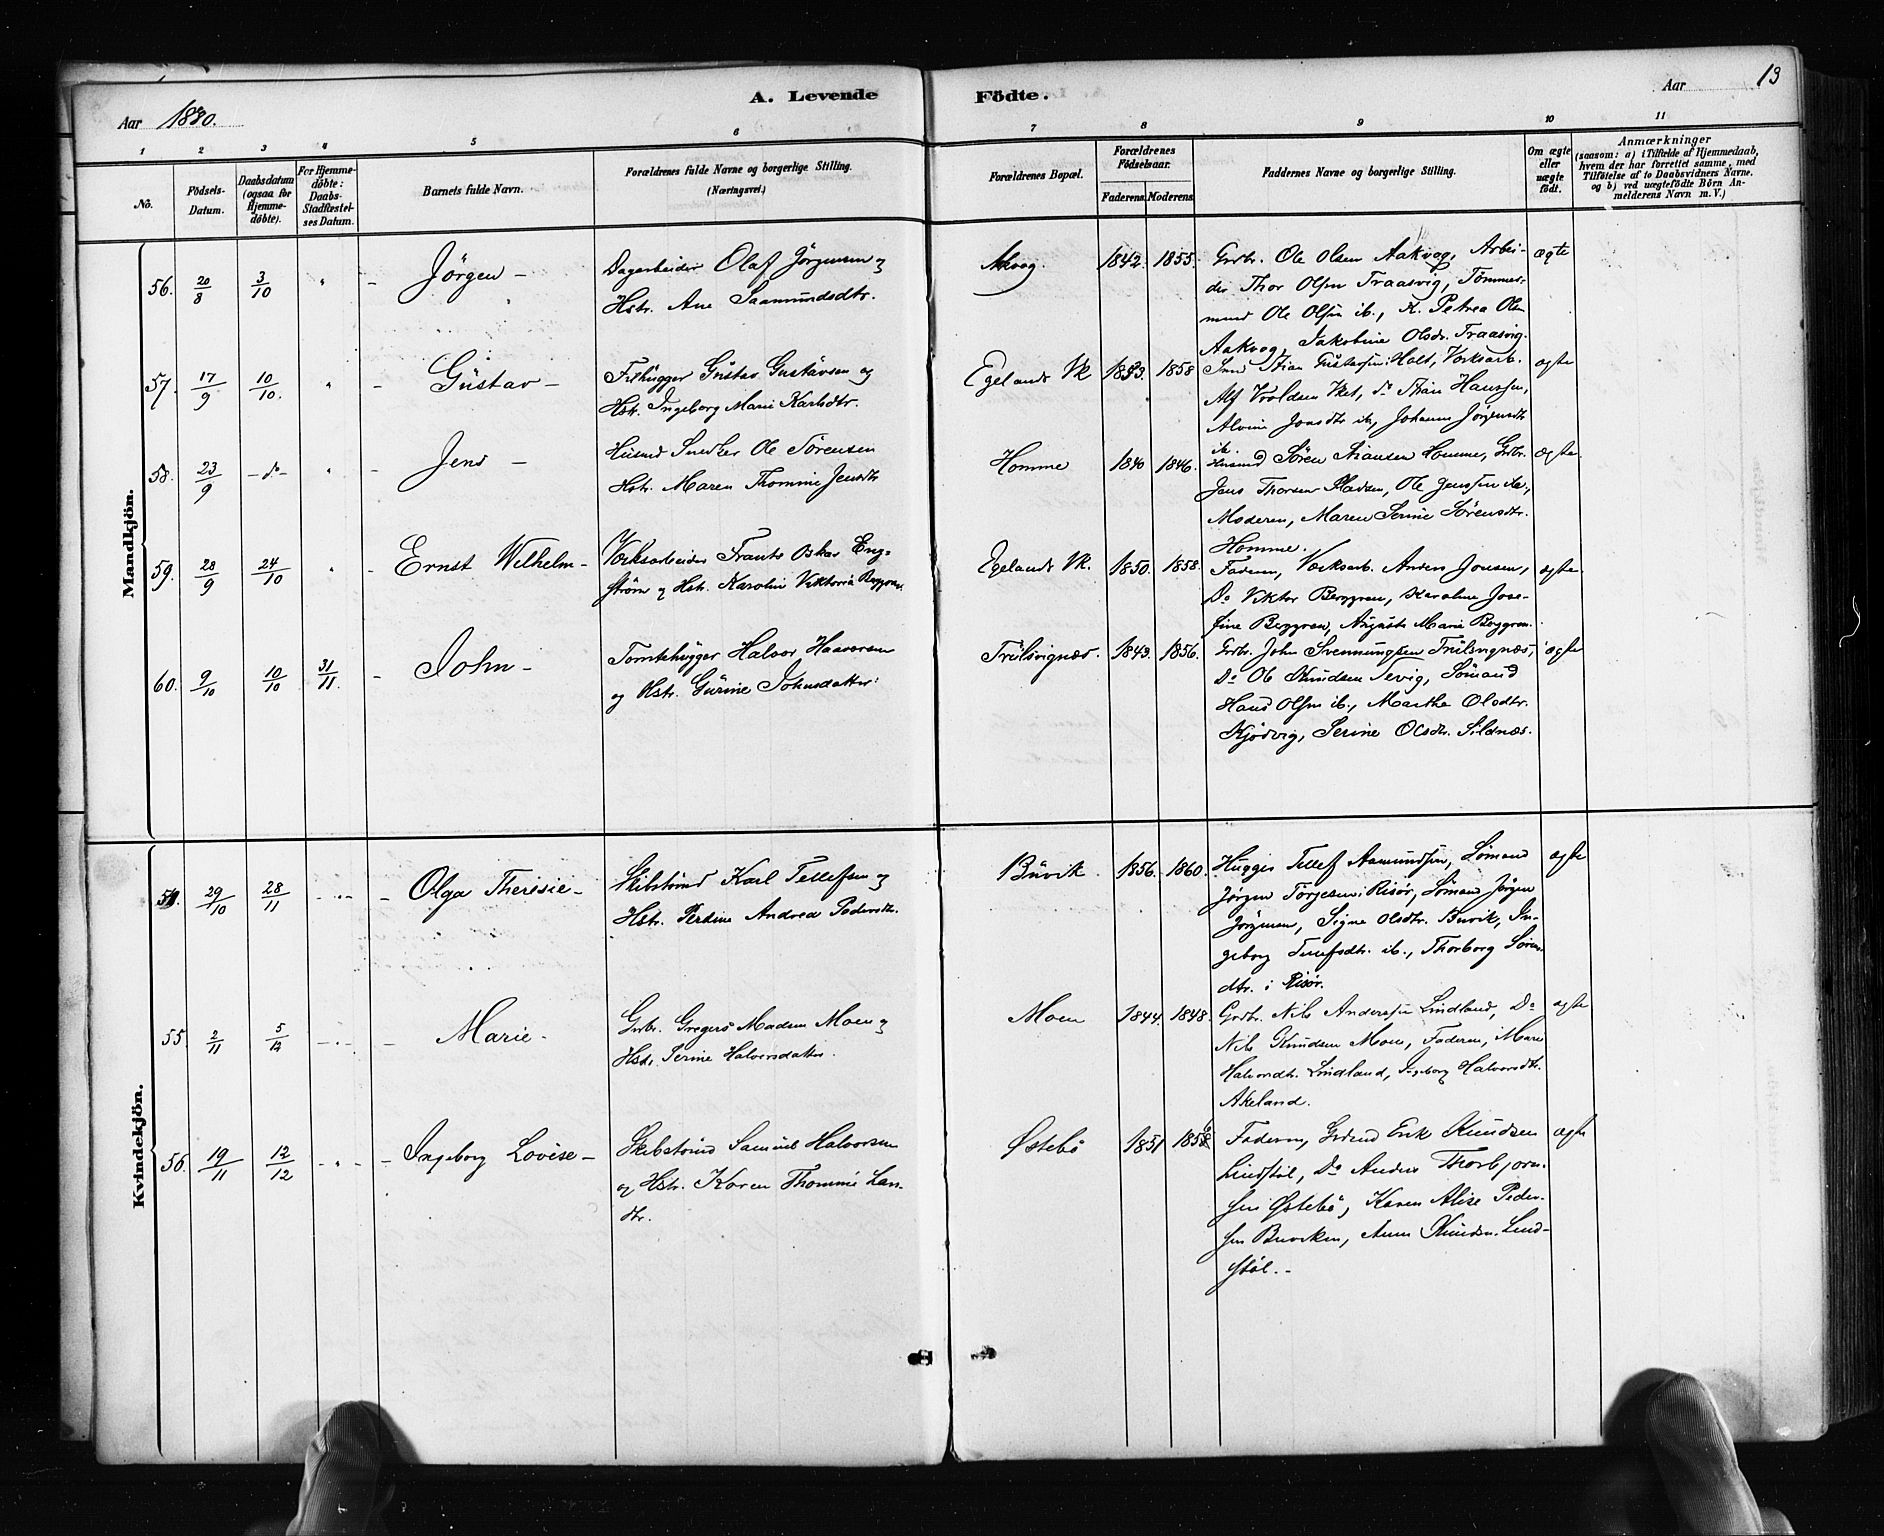 A. Levende Födte.
Aar 1880.
Aar 13
1 2 3 4 5 6 7 8 9 10 11
No.
Födsels-Datum.
Daabsdatum (ogsaa for Hjemme-döbte).
For Hjemme-döbte: Daabs-Stadfæstel-ses Datum.
Barnets fulde Navn.
Forældrenes fulde Navne og borgerlige Stilling. (Næringsvei.)
Forældrenes Bopæl.
Forældrenes Födselsaar. Faderens. Moderens.
Faddernes Navne og borgerlige Stilling.
Om ægte eller uægte födt.
Anmærkninger
(saasom: a) i Tilfælde af Hjemmedaab, hvem der har forrettet samme, med Tilföielse af to Daabsvidners Navne, og b) ved uægtefödte Börn An-melderens Navn m. V.)
Mandkjön.
56. 20/8 3/10 " - Jörgen -
Dagarbeider Olaf Jörgensen og
Hstr. Ane Saamundsdtr.
Akvag. 1842. 1855.
Grdbr. Ole Olsen Aakvag, Arbei-
der Thor Olsen Traasvig, Tömmer-
mand Ole Olsen ib., K. Petrea Olsen
Aakvag, Jakobine Olsdr. Traasvig.
ægte
57. 17/9 10/10. " - Gustav -
Filhugger Gustav Gustavsen og
Hstr. Ingeborg Marie Karlsdtr.
Egelands Vk 1853. 1858
Smed Stian Gustavsen i Holt, Værksarb.
Alf Vroldsen Vket, Do Stian Hanssen,
Alvine Jonsdtr ib, Johanne Jörgensdtr
ib.
ægte
58. 23/9 - do - " - Jens -
Husmd Snedker Ole Sörensen
Hstr. Maren Thomine Jensdtr
Homme 1840 1846.
Husmd Sören Stiansen Homme, Grdbr.
Jens Thorsen Pladsen, Ole Jenssen ib.,
Moderen, Maren Serine Sörensdtr.
Homme.
ægte
59. 28/9 24/10 " - Ernst Wilhelm -
Værksarbeider Frants Oskar Eng-
ström og Hstr. Karoline Viktoria Berggren.
Egelands Vk. 1850. 1858.
Faderen, Værksarb. Anders Jonsen,
Do Viktor Berggren, Karoline Jose-
fine Berggren, Augusta Marie Berggren.
ægte
60. 9/10 10/10 31/11. - John -
Tomtehugger Halvor Haavorsen
og Hstr. Gurine Johnsdatter.
Trulsvignæs. 1843. 1856.
Grdbr. John Svennungsen Trulsvignæs,
Do Ole Knudsen Tevig, Sömand
Hans Olsen ib., Marthe Olsdtr.
Kjödvig, Serine Olsdtr. Sildnæs.
ægte
Kvindekjön.
54. 29/10 28/11 - Olga Theresie -
Skibstmd Karl Tellefsen og
Hstr. Petrine Andrea Pedersdtr.
Buvik. 1856. 1860.
Hugger Tellef Aamundsen, Sömand
Jörgen Torjesen i Risör, Sömand Jörgen
Jörgensen, Signe Olsdtr. Buvik, In-
geborg Tellefsdtr. ib., Thorborg Sören-
dtr. i Risör.
ægte
55. 2/11 5/12 - Marie -
Grdbr. Gregers Madsen Moen og
Hstr. Serine Halvorsdatter.
Moen 1844. 1848.
Grdbr. Nils Anderssen Lindland, Do
Nils Knudsen Moen, Faderen, Mari
Halvorsdtr. Lindland, Ingeborg Halvorsdtr.
Akeland.
ægte
56. 19/11 12/12 - Ingeborg Lovise -
Skibstmd Samuel Halvorsen
og Hstr. Karen Thomine Lan-
dtr.
Østebö 1851 1858
Faderen, Grdmd Erik Knudsen
Lindstöl, Do Anders Thorbjörn-
sen Østebö, Karen Alise Peder-
sen Buviken, Anne Knudsen Lind-
stöl. -
ægte